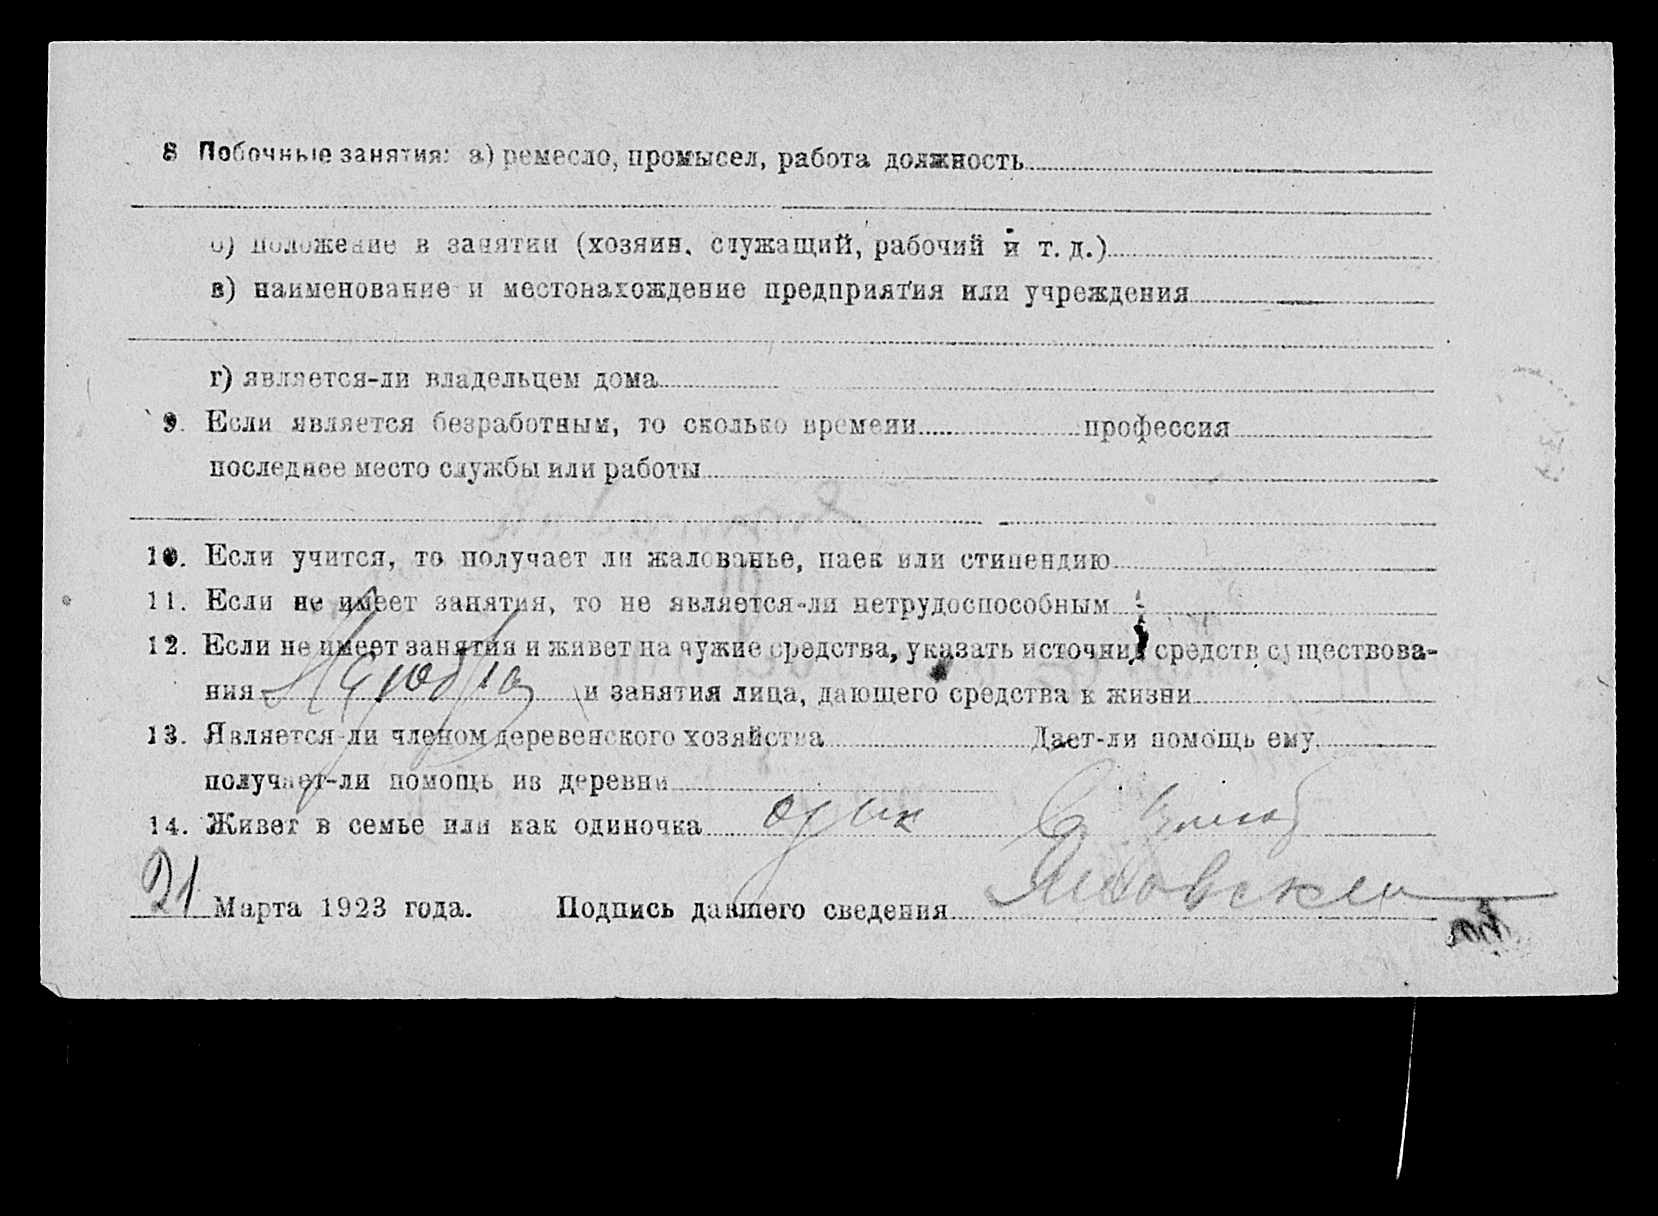 8 Побочные занятия: а) ремесло, промысел, работа должность
б) положение в занятии (хозяин, служащий, рабочий и т. д.)
в) наименование и местонахождение предприятия или учреждения
г) является-ли владельцем дома
9. Если является безработным, то сколько времени профессия
последнее место службы или работы
10. Если учится, то получает ли жалованье, паек или стипендию
11. Если не имеет занятия, то не является-ли нетрудоспособным
12. Если не имеет занятия и живет на чужие средства, указать источник средств существова-
ния и занятия лица, дающего средства к жизни
13. Является-ли членом деревенского хозяйства Дает-ли помощь ему
получает-ли помощь из деревни
14. Живет в семье или как одиночка один
21 Марта 1923 года. Подпись давшего сведения